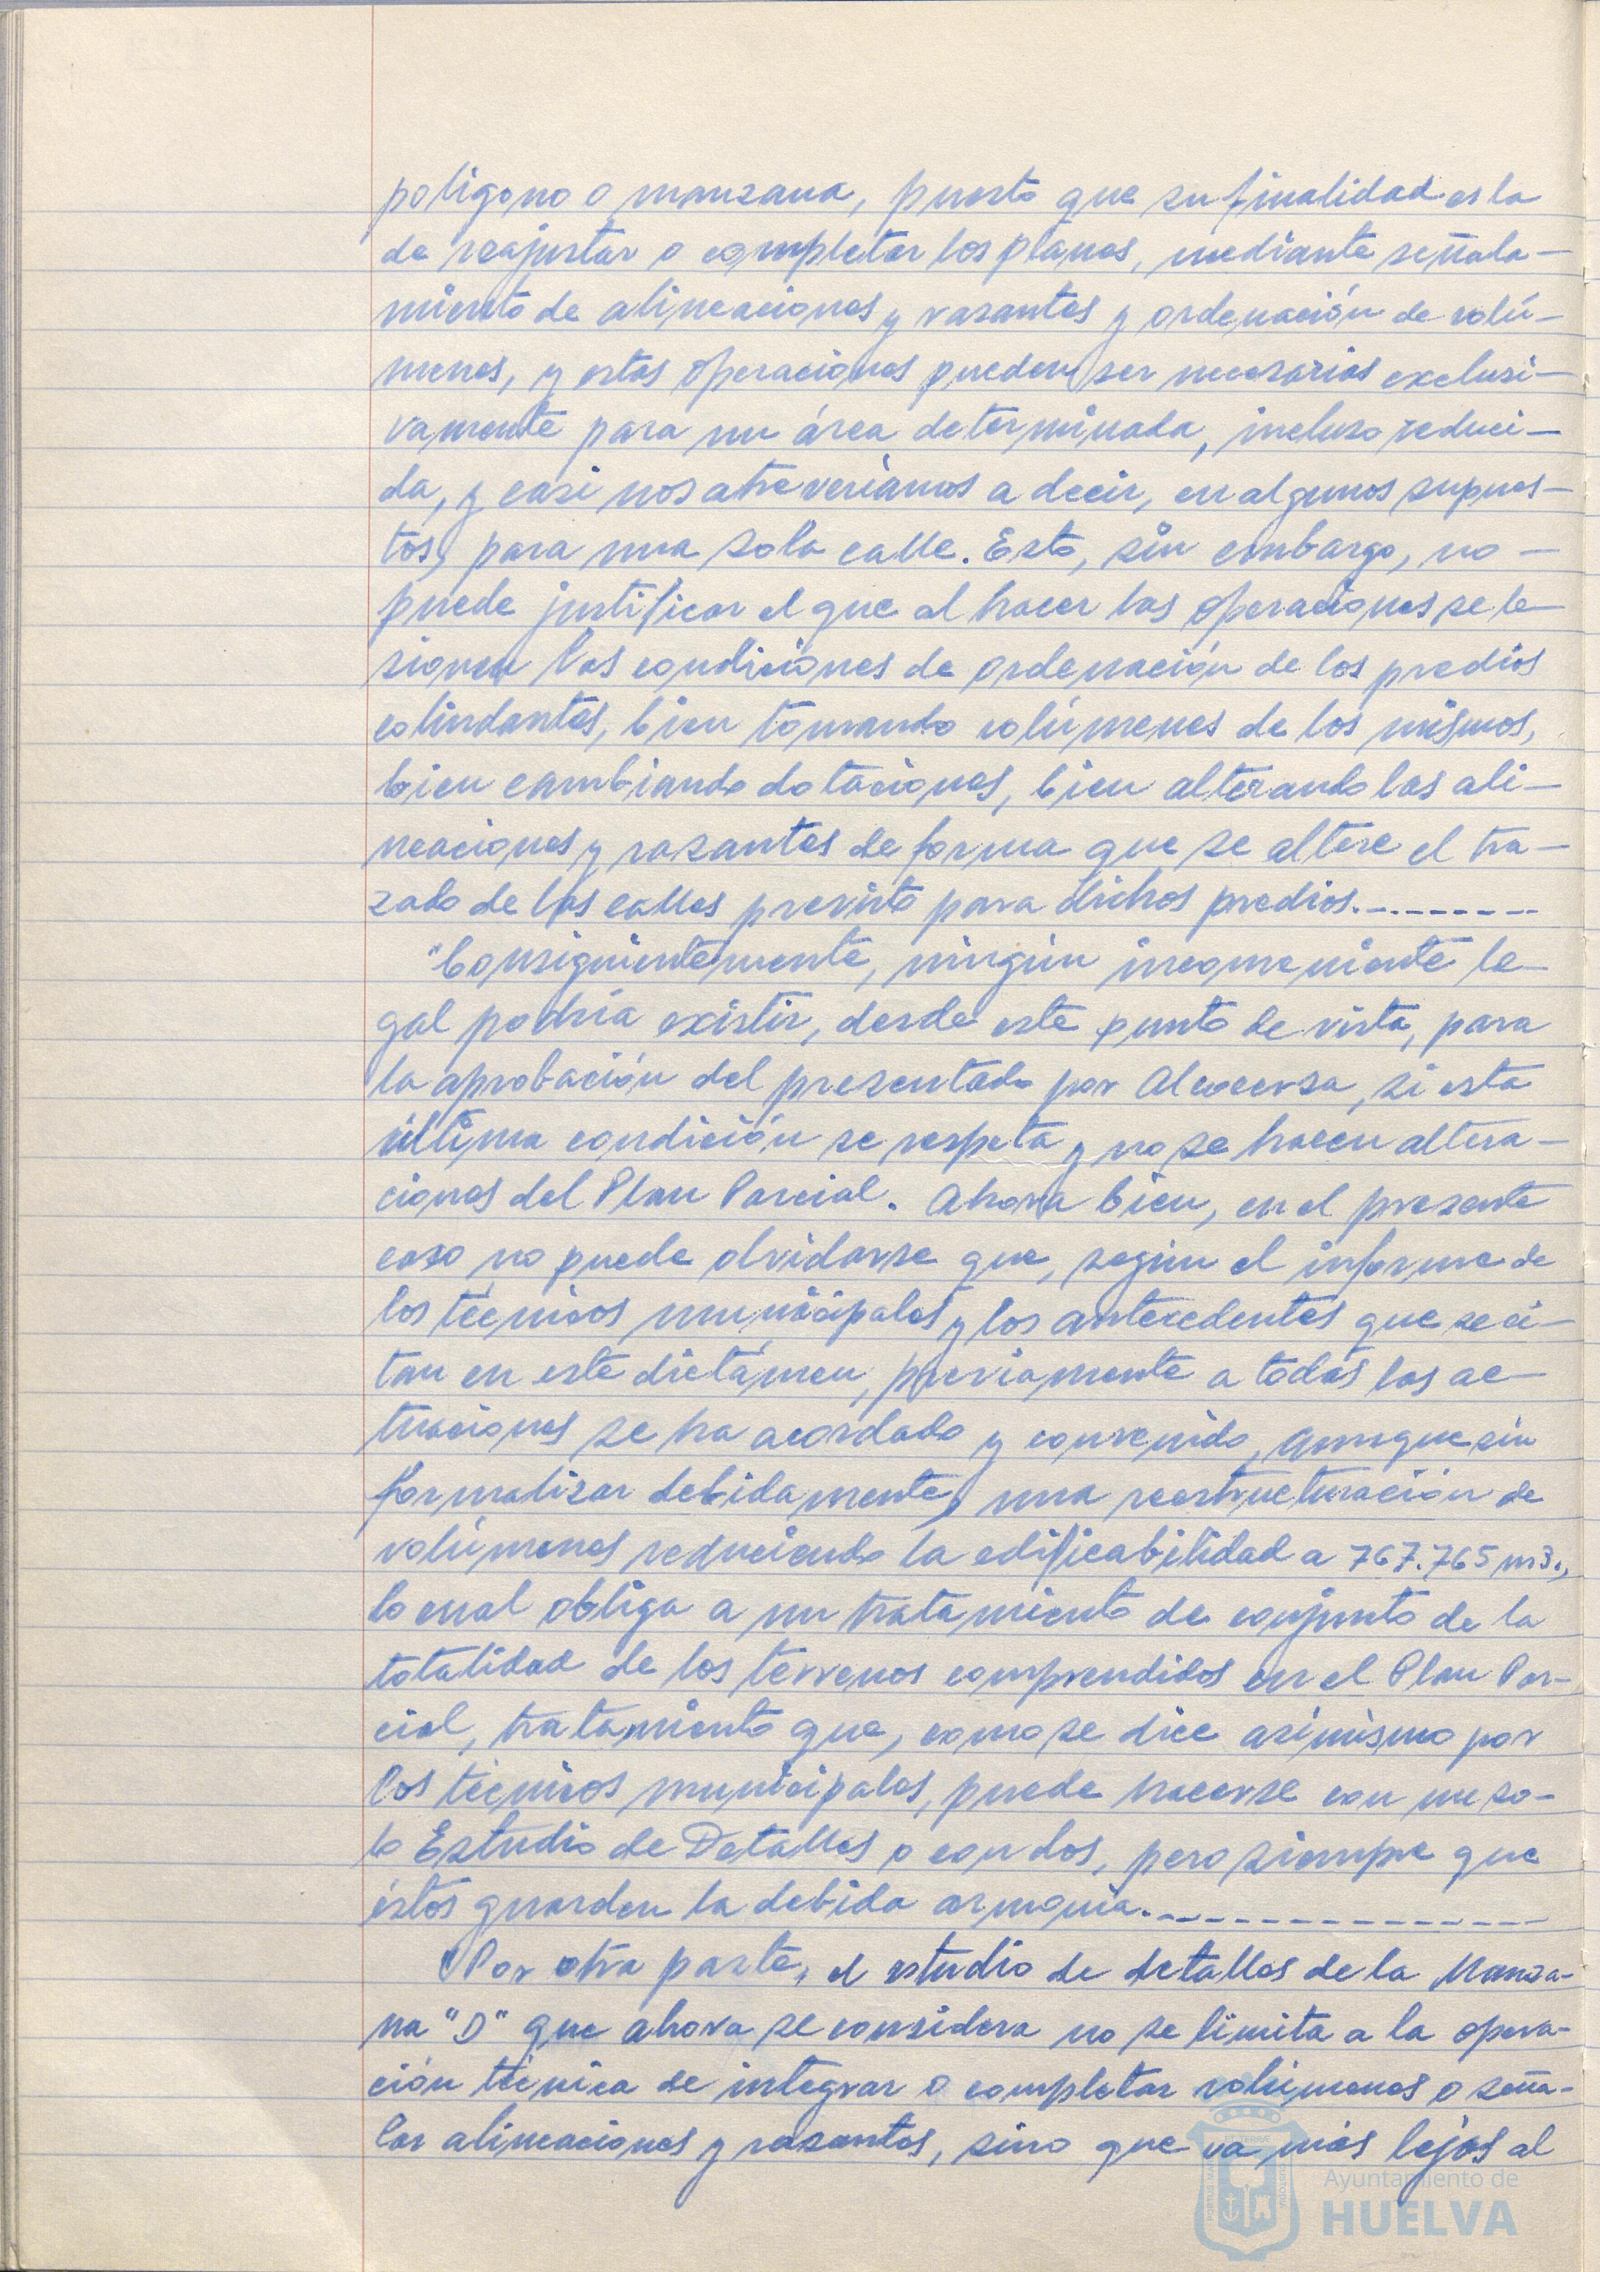 polígono o manzana, puesto que su finalidad es la
de reajustar o completar los planes, mediante señala-
miento de alineaciones y rasantes y ordenación de volú-
menes, y estas operaciones pueden ser necesarias exclusi-
vamente para un área determinada, incluso reduci-
da, y casi nos atreveríamos a decir, en algunos supues-
tos, para una sola calle. Esto, sin embargo, no -
puede justificar el que al hacer las operaciones se le-
sionen las condiciones de ordenación de los predios
colindantes, bien tomando volúmenes de los mismos,
bien cambiando dotaciones, bien alterando las ali-
neaciones y rasantes de forma que se altere el tra-
zado de las calles previsto para dichos predios.---------
"Consiguientemente, ningún inconveniente le-
gal podría existir, desde este punto de vista, para
la aprobación del presentado por Alcocersa, si esta
última condición se respeta y no se hacen altera-
ciones del Plan Parcial. Ahora bien, en el presente
caso no puede olvidarse que, según el informe de
los técnicos municipales y los antecedentes que se ci-
tan en este dictámen, previamente a todas las ac-
tuaciones se ha acordado y convenido, aunque sin
formalizar debidamente, una reestructuración de
volúmenes reduciendo la edificabilidad a 767.765 m3.,
lo cual obliga a un tratamiento de conjunto de la
totalidad de los terrenos comprendidos en el Plan Par-
cial, tratamiento que, como se dice asimismo por
los técnicos municipales, puede hacerse con un so-
lo Estudio de Detalles o con dos, pero siempre que
éstos guarden la debida armonía.---------------
"Por otra parte, el estudio de detalles de la Manza-
na "D" que ahora se considera no se limita a la opera-
ción técnica de integrar o completar volúmenes o seña-
lar alineaciones y rasantes, sino que va más lejos al
Ayuntamiento de
HUELVA